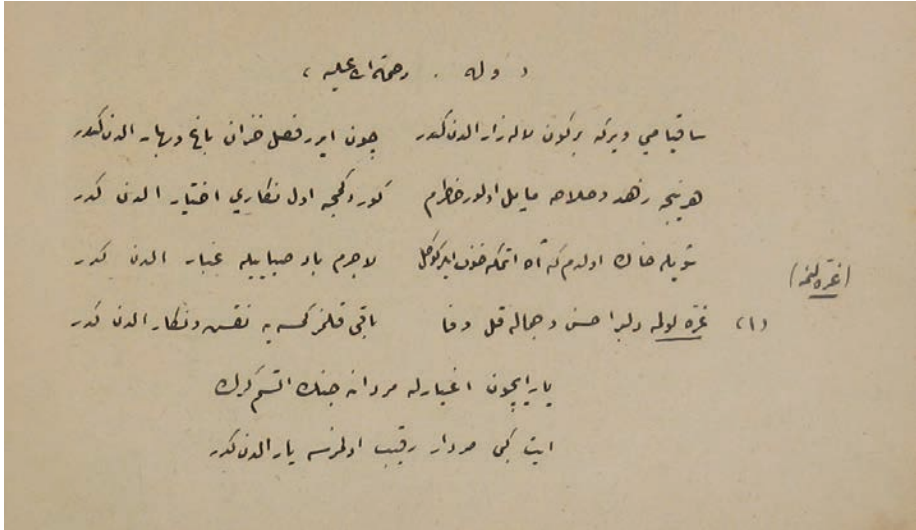 وله . رحمة الله عليه
ساقيا مي ويركه بر كون لاله زار الدن كيدر چون ايرر فصل خزان باغ وبهار الدن كيدر
هر نيجه زهد وصلاحه مايل اولور خاطرم كوردكجه اول نكاري اختيار الدن كيدر
شويله خاك اولدم كه آه اتمكه خوف ايلر كوكل لاجرم باد صبا ايله غبار الدن كيدر
(غره لنمه)
(١) غره اولمه دلبرا حسن وجماله قل وفا باقي قلمز كمسه يه نقش ونكار الدن كيدر
يار ايچون اغيارله مردانه جنك اتسم كرك
ايت كبي مردار رقيب اولمزسه يار الدن كيدر